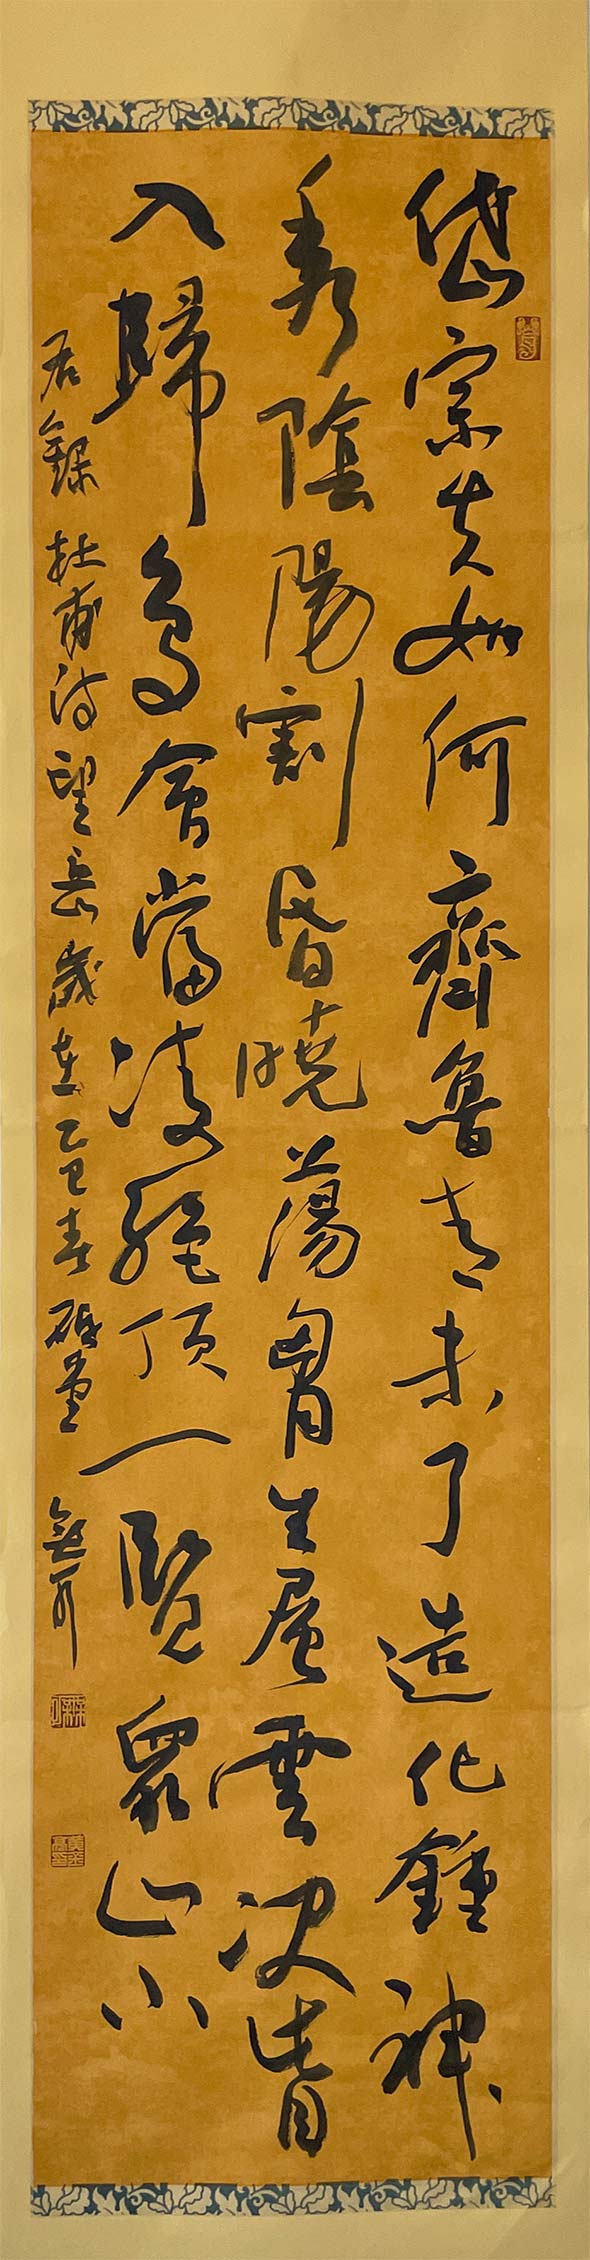 岱宗夫如何齊魯青未了造化鍾神
秀陰陽割昏曉蕩胷生层雲决眥
入歸鳥會當凌絕頂一覽眾山小
右錄杜甫詩望岳歲在乙巳春堂